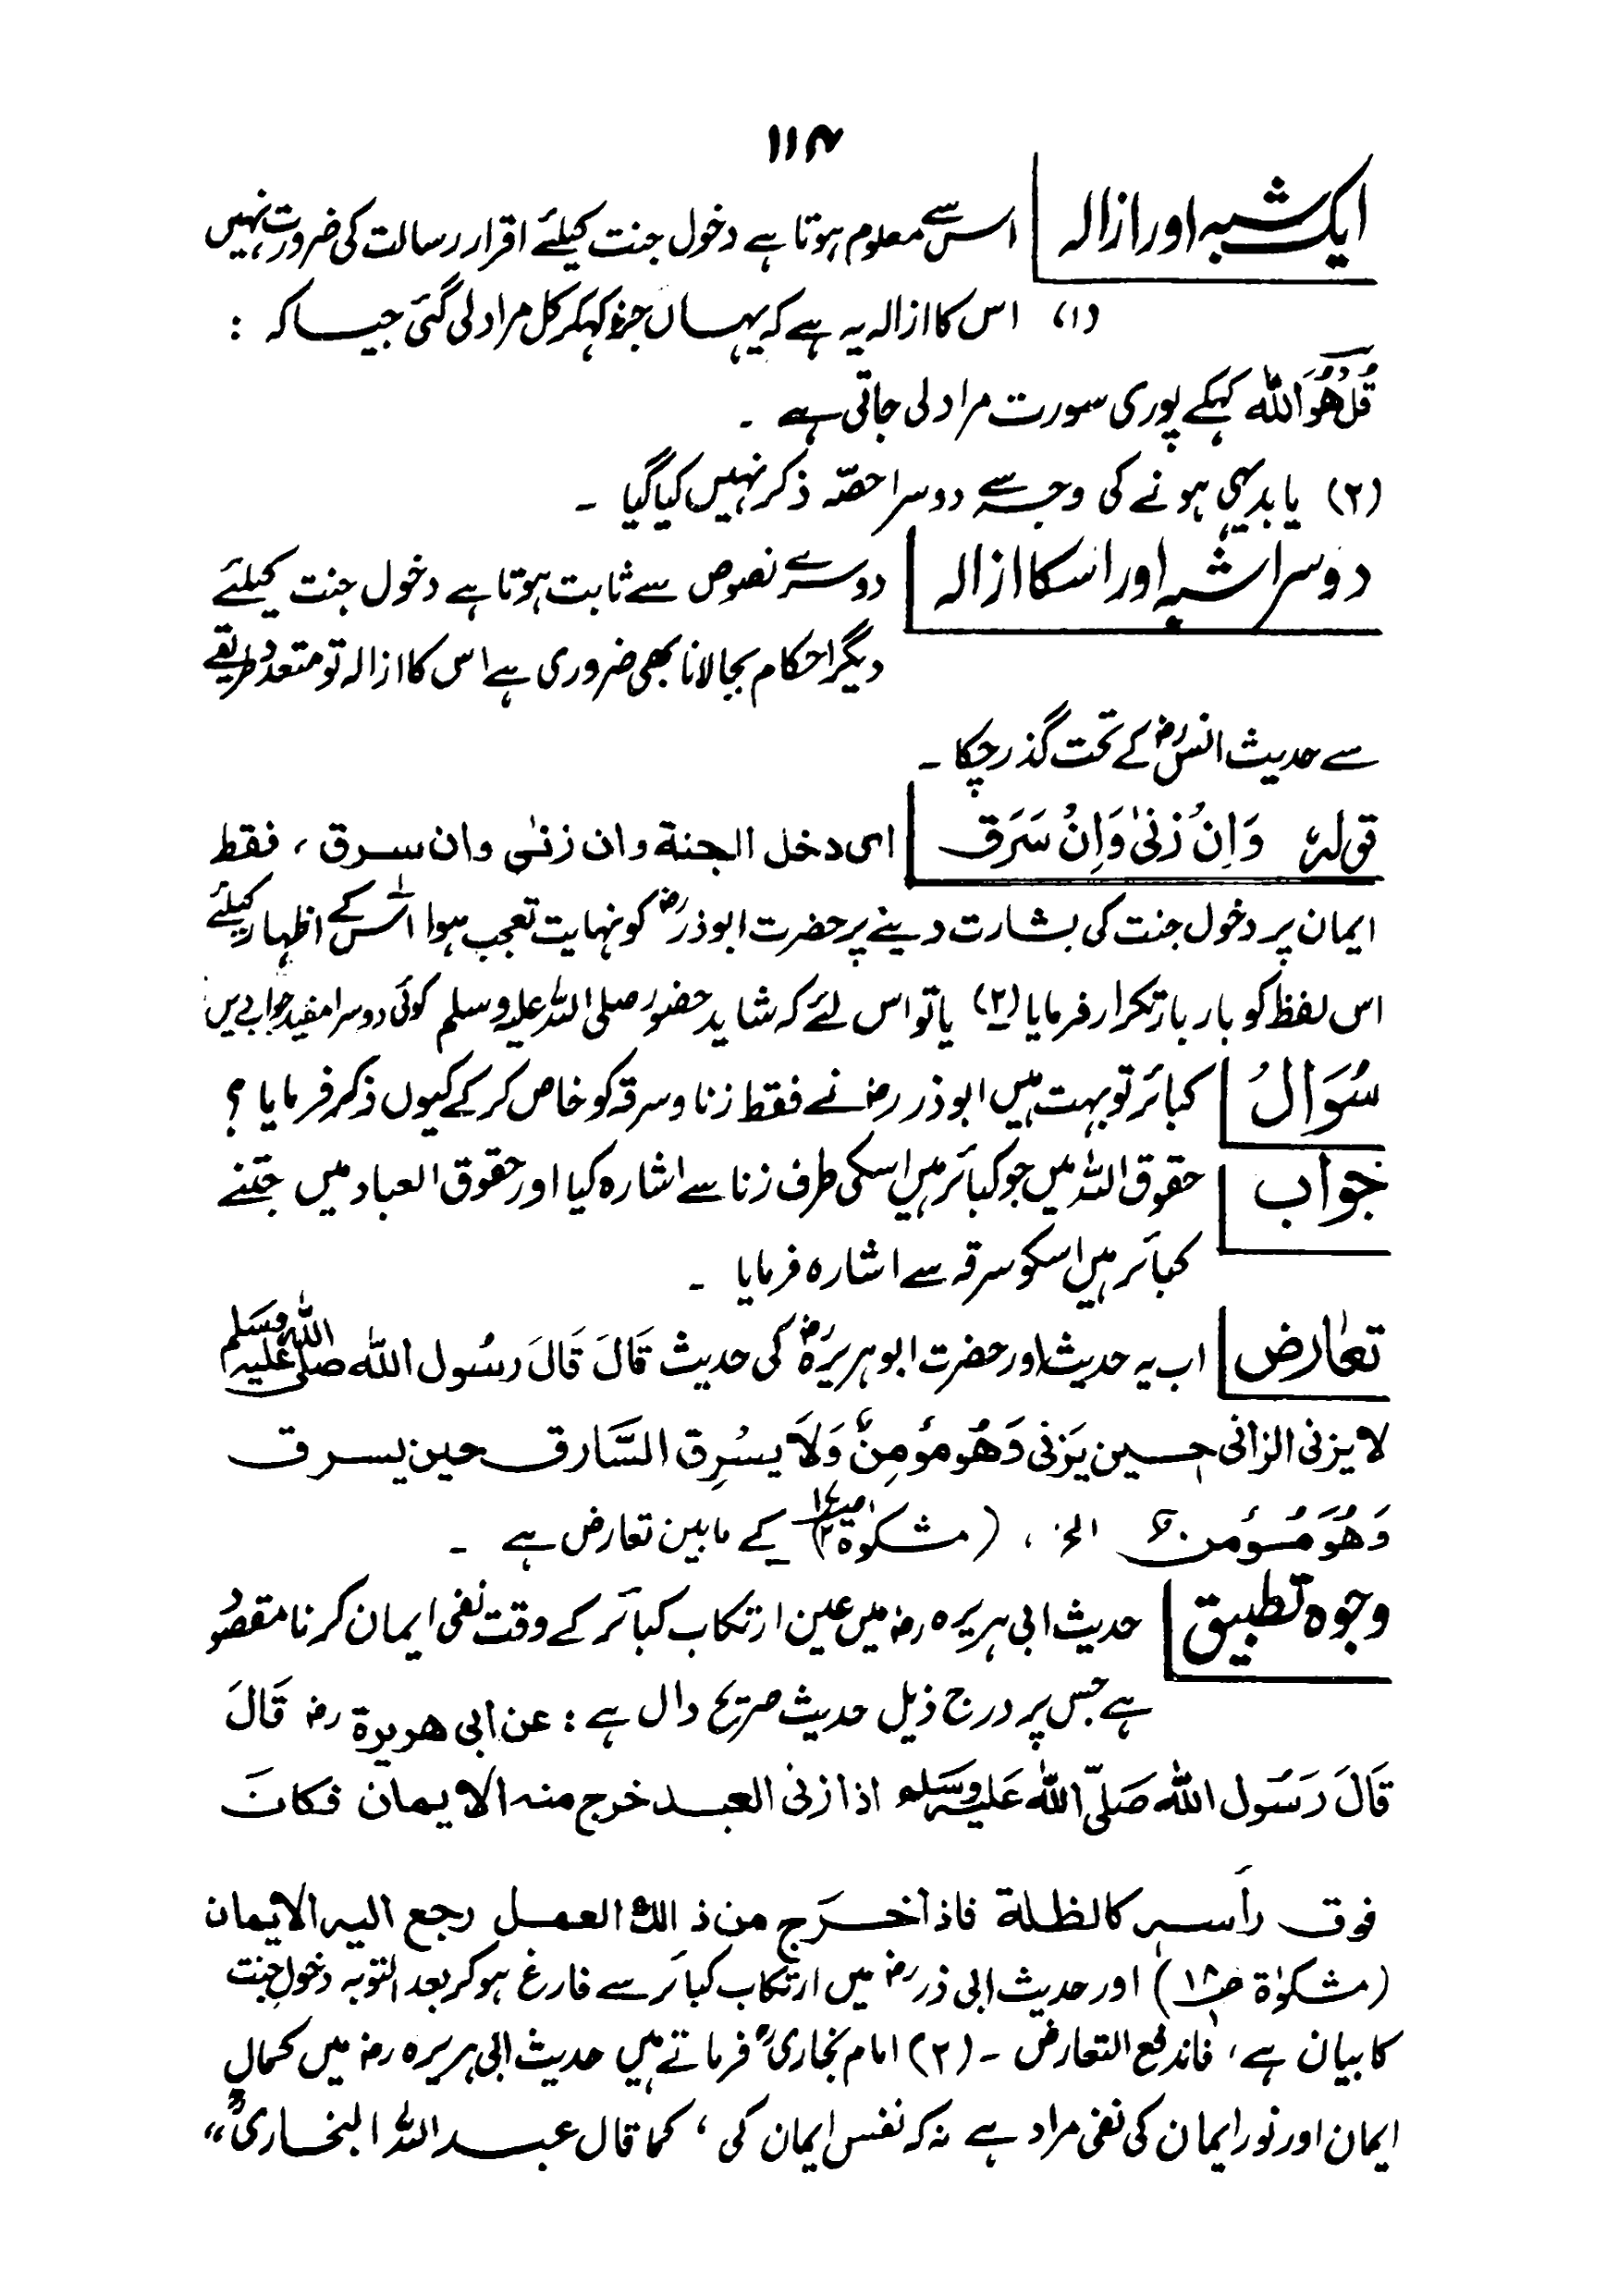 ۱۱۴
ایک شبہ اور ازالہ اس سے معلوم ہوتا ہے دخول جنت کیلئے اقرار رسالت کی ضرورت نہیں
(۱) اس کا ازالہ یہ ہے کہ یہاں جزء کہکر کل مراد لی گئی جیسا کہ :
قُلْ هُوَ اللّٰه کہکے پوری سورت مراد لی جاتی ہے ۔
(۲) یا بدیہی ہونے کی وجہ سے دوسرا حصّہ ذکر نہیں کیا گیا ۔
دوسرا شبہ اور اسکا ازالہ دوسرے نصوص سے ثابت ہوتا ہے دخول جنت کیلئے
دیگر احکام بجا لانا بھی ضروری ہے اس کا ازالہ تو متعدد طریقے
سے حدیث انسؓ کے تحت گذر چکا ۔
قولہٗ وَاِنْ زَنٰی وَاِنْ سَرَق ای دخل الجنة وان زنٰی وان سرق ، فقط
ایمان پر دخول جنت کی بشارت دینے پر حضرت ابوذرؓ کو نہایت تعجب ہوا اس کے اظہار کیلئے
اس لفظ کو بار بار تکرار فرمایا (۲) یا تو اس لئے کہ شاید حضور صلی اللہ علیہ وسلم کوئی دوسرا مفید جواب دیں
سُوَالُ کبائر تو بہت ہیں ابوذر رض نے فقط زنا و سرقہ کو خاص کر کے کیوں ذکر فرمایا ؟
جواب حقوق اللہ میں جو کبائر ہیں اسکی طرف زنا سے اشارہ کیا اور حقوق العباد میں جتنے
کبائر ہیں اسکو سرقہ سے اشارہ فرمایا ۔
تعارض اب یہ حدیث اور حضرت ابوہریرہؓ کی حدیث قَالَ قَالَ رسُول اللّٰه صلی اللّٰه علیہ وسَلم
لا یزنی الزانی حین یَزنی وَهُو مؤمِنٌ وَلَا یسْرِق السَّارق حین یسرق
وَهُوَ مُؤمن الخ ، (مشکوٰة ) کے مابین تعارض ہے ۔
وجوہ تطبیق حدیث ابی ہریرہ رض میں عین ارتکاب کبائر کے وقت نفی ایمان کرنا مقصُود
ہے جس پر درج ذیل حدیث صریح دال ہے : عن ابی هریرة رض قَالَ
قَالَ رَسُول اللّٰه صَلّی اللّٰه عَلیہ وَسَلم اذا زنی العبد خرج منه الایمان فکانَ
فوق رأسه کالظلة فاذا خرَج من ذالك العمل رجع الیه الایمان
(مشکوٰة ص۱۸) اور حدیث ابی ذر رض میں ارتکاب کبائر سے فارغ ہو کر بعد التوبہ دخولِ جنت
کا بیان ہے ، فاندفع التعارض ۔ (۲) امام بخاریؒ فرماتے ہیں حدیث ابی ہریرہ رض میں کمالِ
ایمان اور نور ایمان کی نفی مراد ہے نہ کہ نفس ایمان کی ، کما قال عبد اللّٰه البخاریؒ "